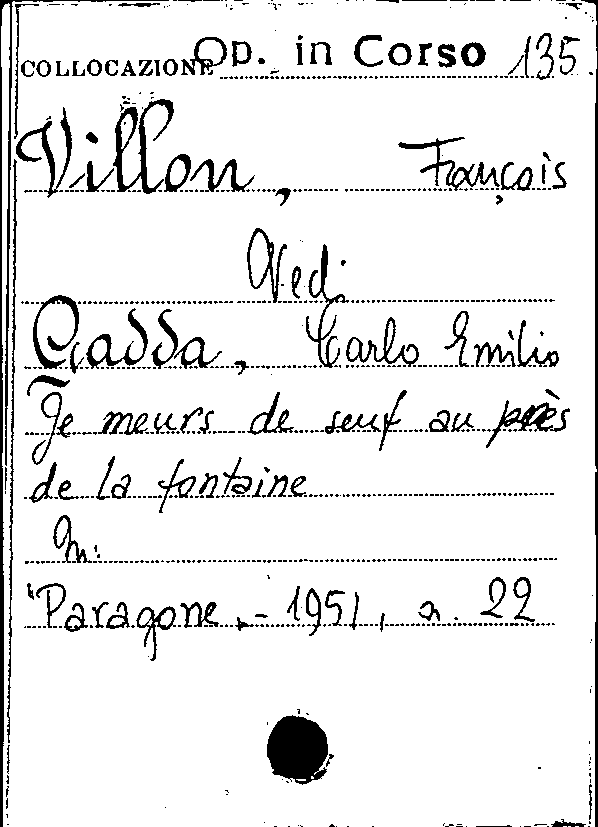 COLLOCAZIONE Op. in Corso 135.
Villon, François
Vedi
Gadda, Carlo Emilio
Je meurs de seuf au près
de la fontaine
In:
"Paragone,- 1951, a. 22